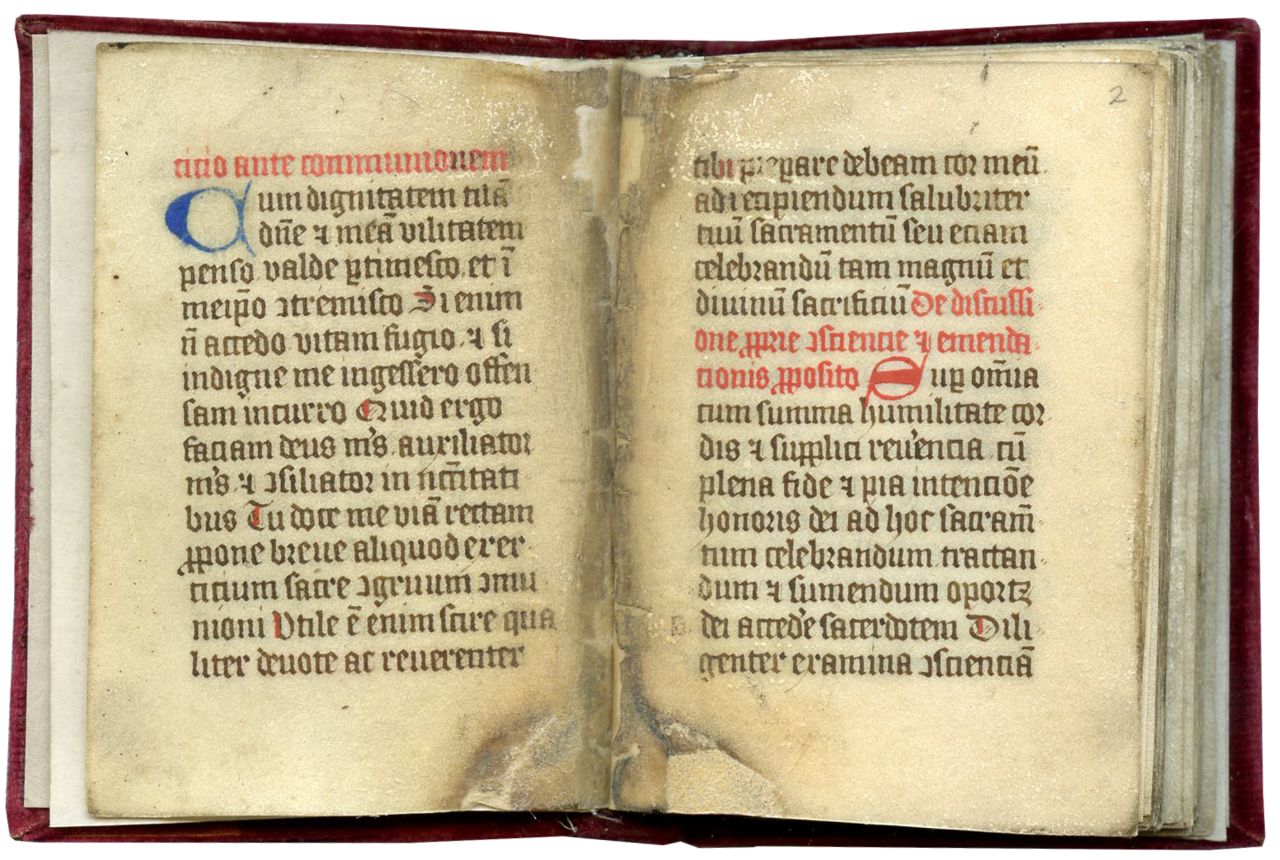 ticio ante communionem
Cum dignitatem tuā
dn̄e ⁊ meā vilitatem
penso valde ꝑtimesco et ī
meip̄o ↄtremisco Si enim
n̄ accedo vitam fugio ⁊ si
indigne me ingessero offen
sam incurro Quid ergo
faciam deus m̄s auxiliator
m̄s ⁊ ↄsiliator in necc̄itati
bus Tu doce me viā rectam
ꝓpone breue aliquod exer
cicium sacre ↄgruum ↄmu
nioni Vtile ē enim scire qua
liter deuote ac reuerenter
2
tibi preꝑare debeam cor meū
ad recipiendum salubriter
tuū sacramentū seu eciam
celebrandū tam magnū et
diuinū sacrificiū De discussi
one ꝓprie ↄsciencie ⁊ emenda
cionis ꝓposito Suꝑ om̄ia
cum summa humilitate cor
dis ⁊ supplici reu̾encia cū
plena fide ⁊ pia intenciōe
honoris dei ad hoc sacram̄
tum celebrandum tractan
dum ⁊ sumendum oportꝫ
dei acced̾e sacerdotem Dili
genter examina ↄscienciā